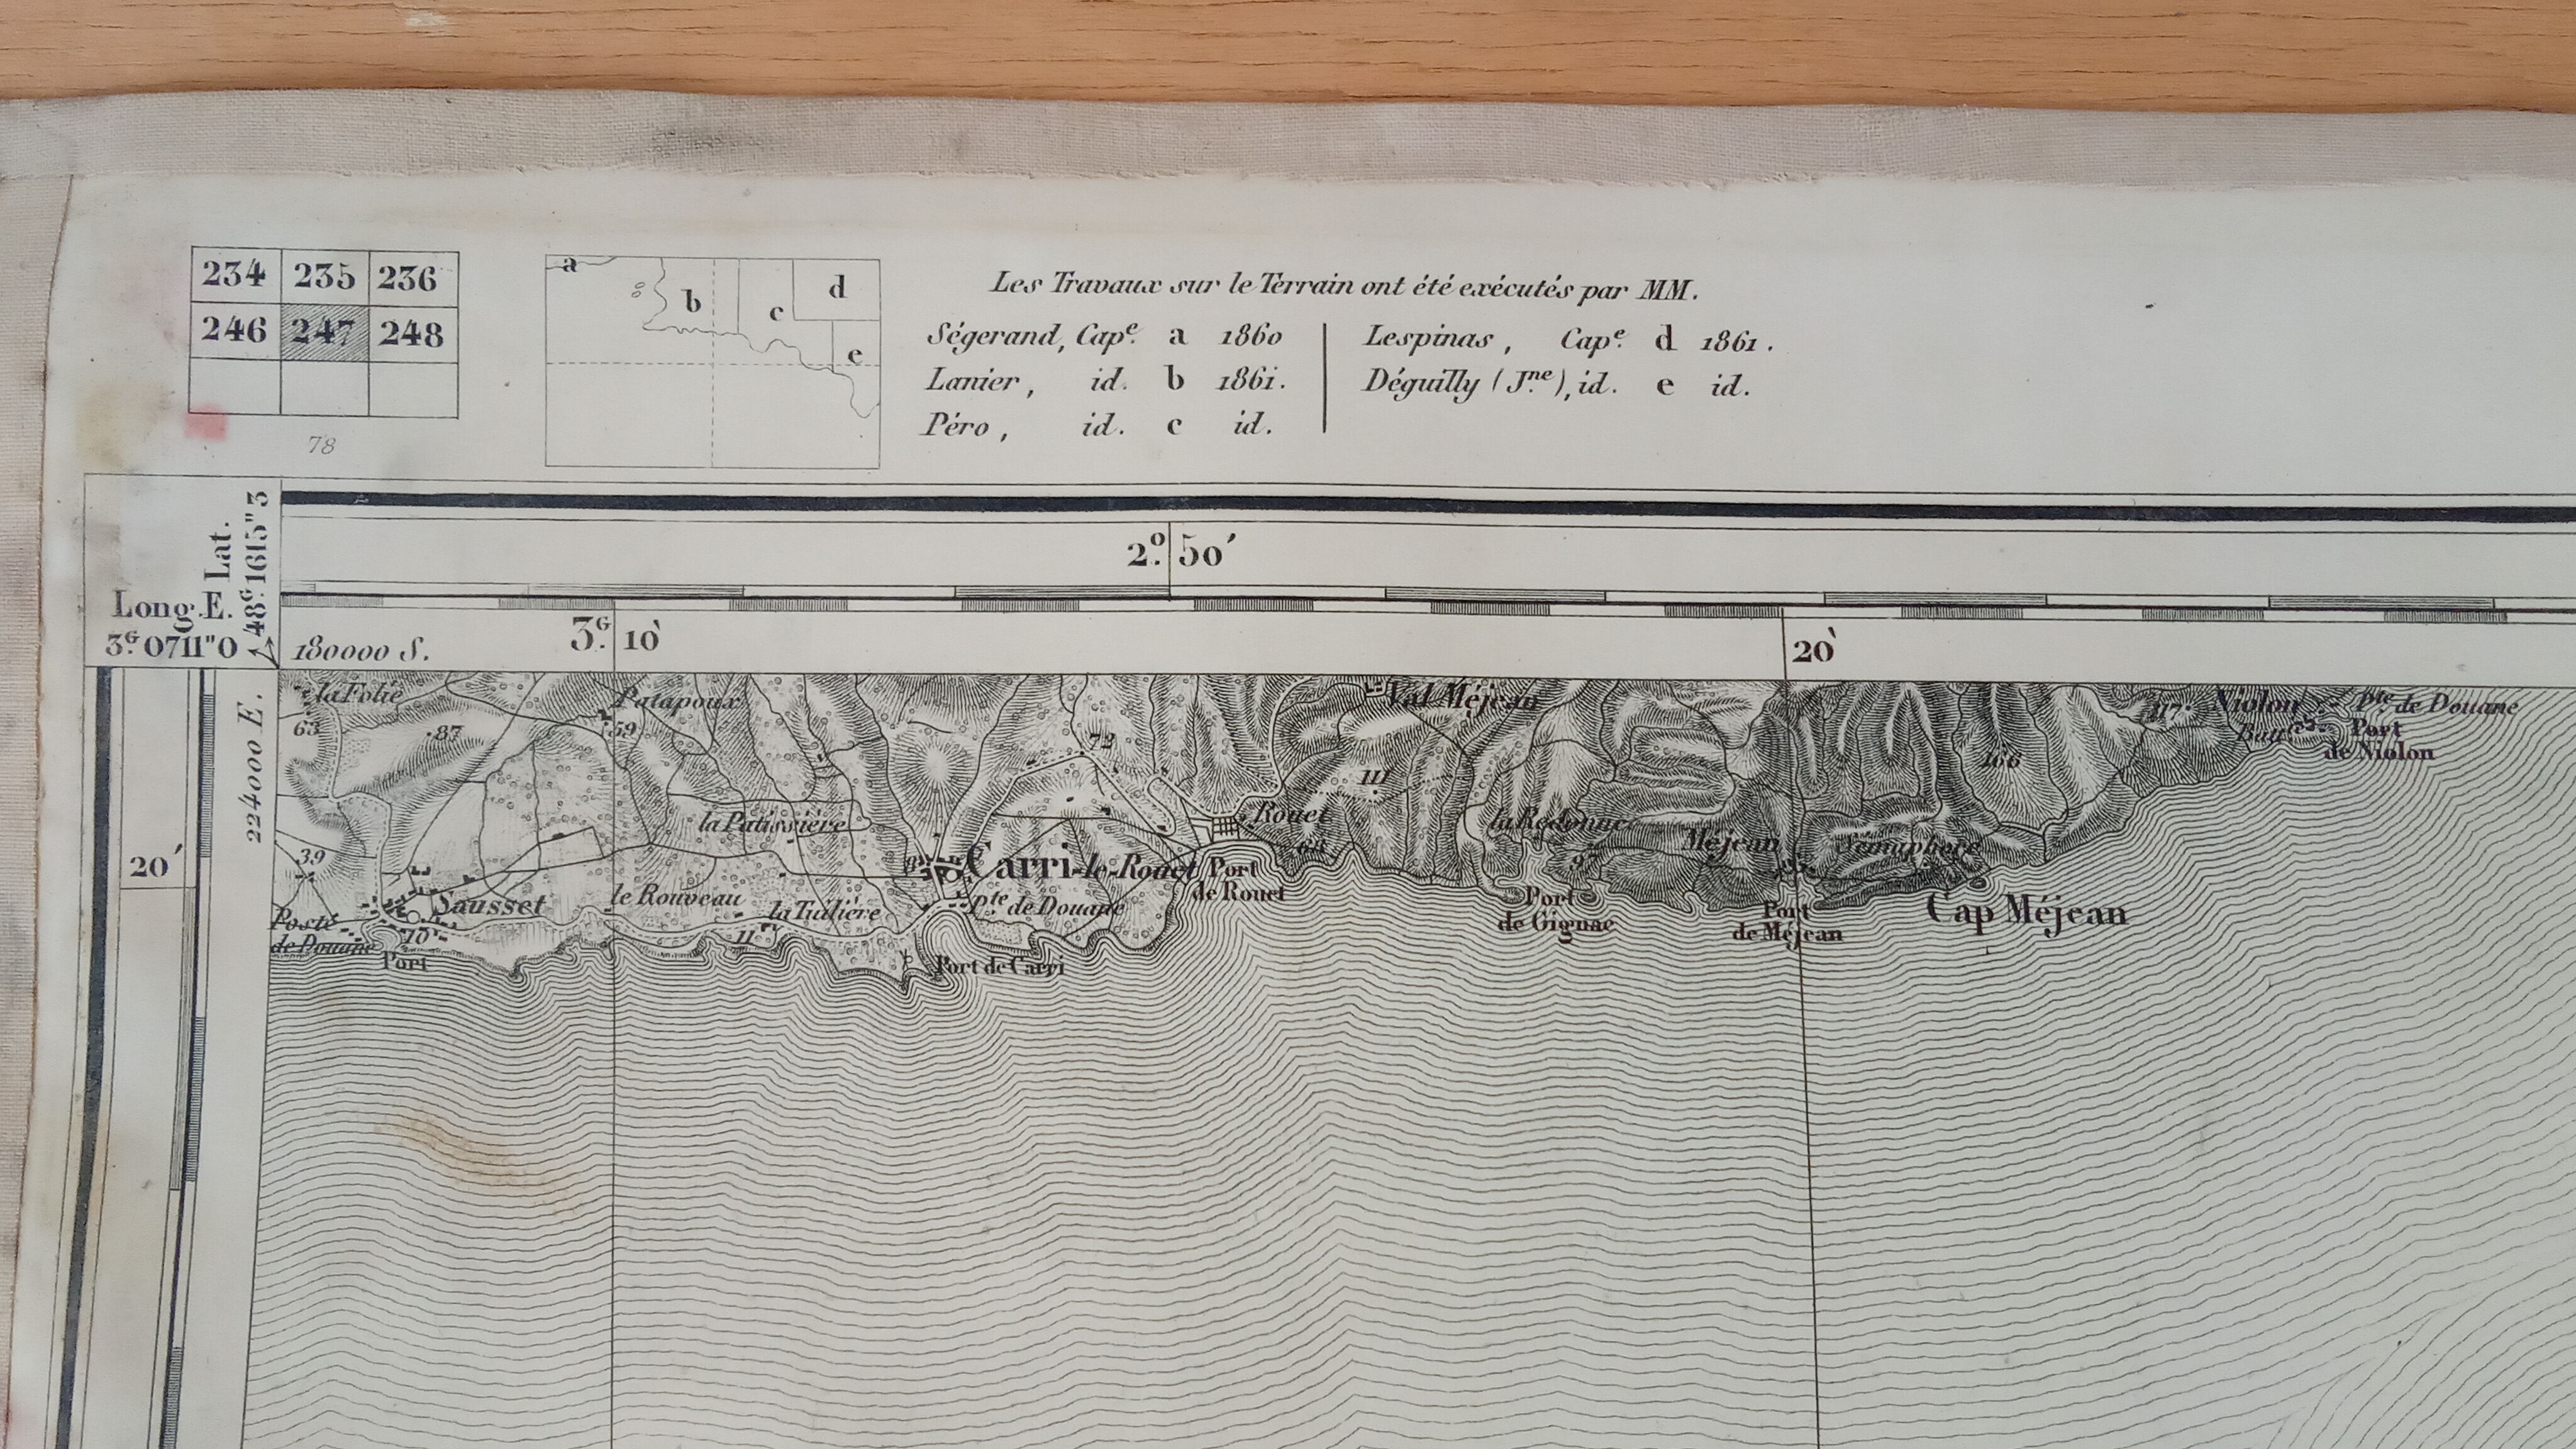 234 235 236
246 247 248
78
a b c d e
Les Travaux sur le Terrain ont été exécutés par MM.
Ségerand, Cap.e a 1860
Lanier, id. b 1861.
Péro, id. c id.
Lespinas, Cap.e d 1861.
Déguilly (J.ne), id. e id.
Long. E.
3.G 0711"0
Lat.
48.G 1615"3
2.° 50'
180000 S.
3.G 10`
20`
224000 E.
20'
la Folie
63
87
Patapoux
59
72
Val Méjean
111
166
117
Niolon
Pte de Douane
Port
de Niolon
39
la Patissière
Rouet
68
la Redonne
97
Méjean
Sémaphore
8
Carri-le-Rouet
Port
de Rouet
Sausset
le Rouveau
la Tuilière
Pte de Douane
Port
de Gignac
Port
de Méjean
Cap Méjean
Poste
de Douane
10
11
Port
Port de Carri